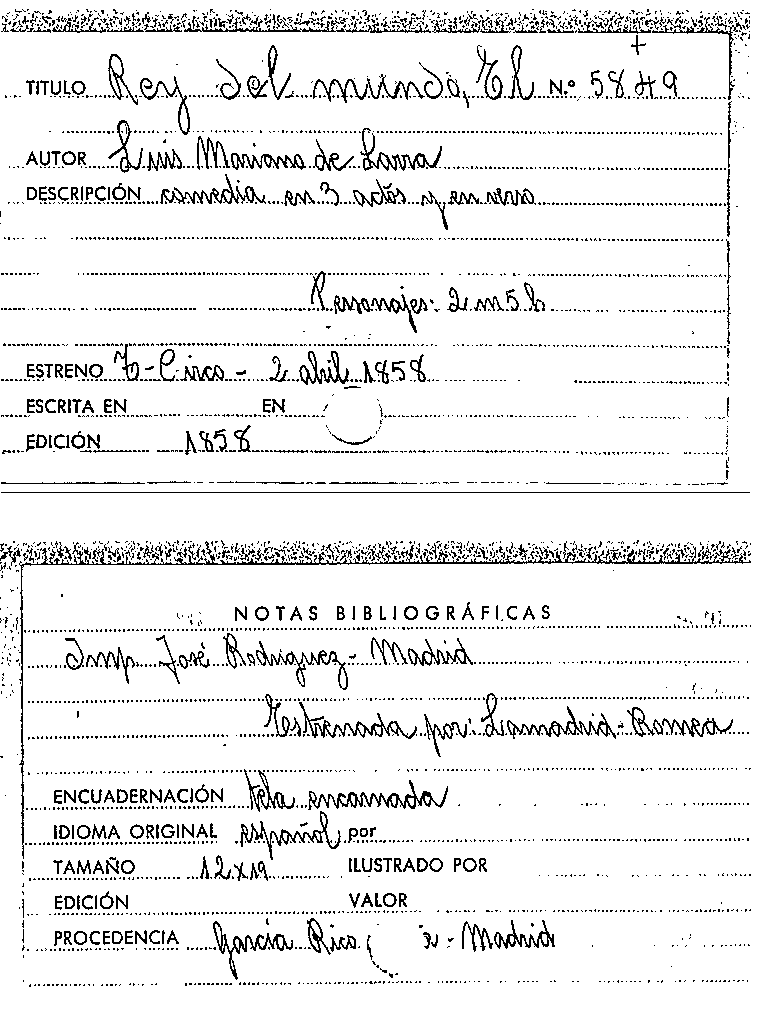 +
TITULO Rey del mundo, El N.º 5849
AUTOR Luis Mariano de Larra
DESCRIPCIÓN comedia en 3 actos y en verso
Personajes: 2 m 5 h
ESTRENO T-Circo - 2 abril 1858
ESCRITA EN EN
EDICIÓN 1858
NOTAS BIBLIOGRÁFICAS
Imp José Rodriguez - Madrid
Estrenada por: Lamadrid - Romea
ENCUADERNACIÓN tela encarnada
IDIOMA ORIGINAL español por
TAMAÑO 12x19 ILUSTRADO POR
EDICIÓN VALOR
PROCEDENCIA García Rico - Madrid